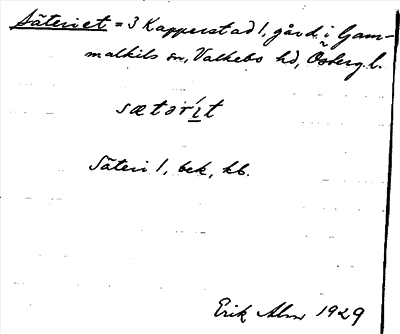 Säteriet = 3 Kapperstad 1, gård i Gam-
malkils sn, Valkebo hd, Österg. l.
sætərí̱t
Säteri 1, bek, kb.
Erik Alm 1929